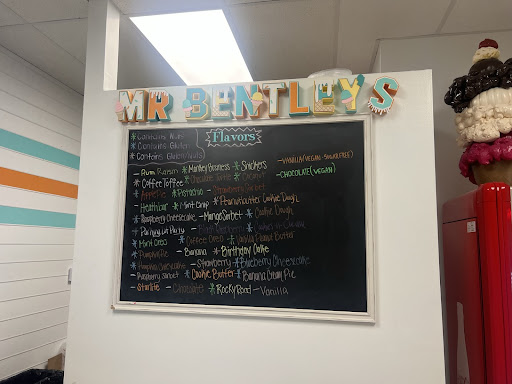 MR BENTLEY'S
Flavors
* Contains Nuts
* Contains Gluten
* Contains Gluten/Nuts
- Rum Raisin * Monkey Business * Snickers - VANILLA (VEGAN - SUGAR FREE)
* Coffee Toffee * Chocolate Turtle * - CHOCOLATE (VEGAN)
* Apple Pie * Pistachio - Strawberry Sorbet
- Heath Bar * Mint Chip * Peanut Butter Cookie Dough
* Raspberry Cheesecake - Mango Sorbet * Cookie Dough
Party - Black
* Mint Oreo * Coffee Oreo * Vanilla Peanut Butter
* Pumpkin Pie - Banana * Birthday Cake
* Pumpkin Cheesecake - Strawberry * Blueberry Cheesecake
- Raspberry Sorbet * Cookie Butter * Banana Cream Pie
- Starlite - Chocolate * Rocky Road - Vanilla